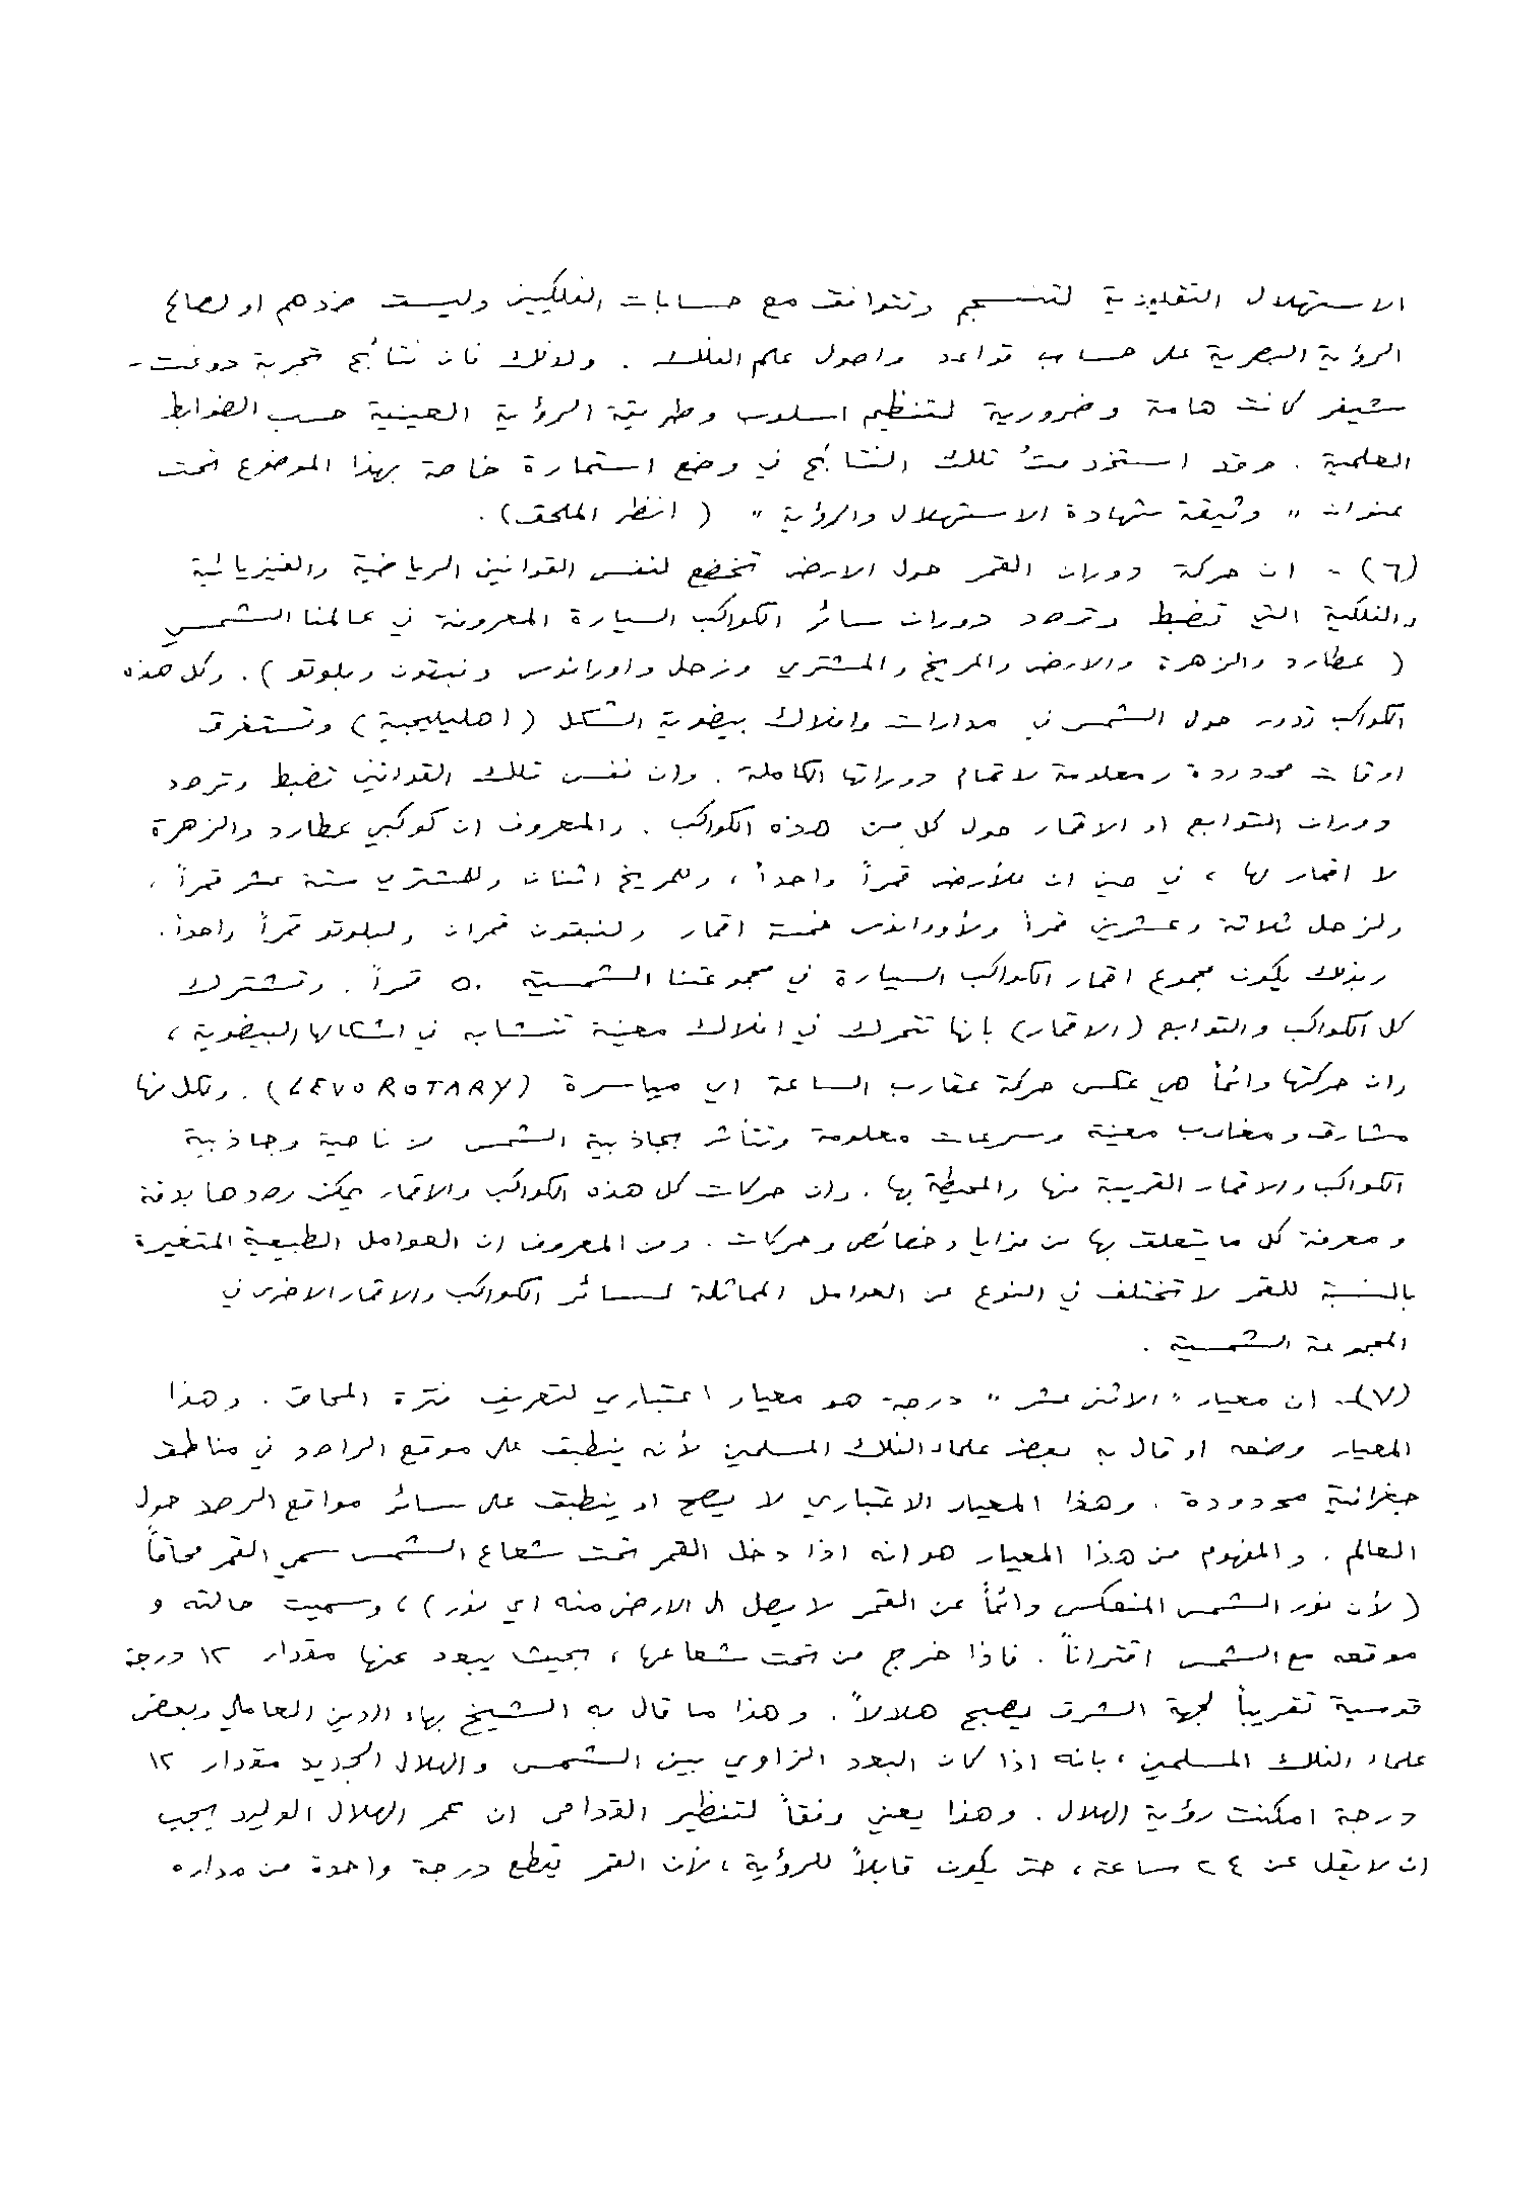 الاستهلال التقليدية لتنسجم وتتوافق مع حسابات الفلكيين وليست ضدهم او لصالح
الرؤية البصرية على حساب قواعد واصول علم الفلك . ولذلك فان نتائج تجربة دوغت -
شيفر كانت هامة وضرورية لتنظيم اسلوب وطريقة الرؤية العينية حسب الضوابط
العلمية . وقد استخدمتُ تلك النتائج في وضع استمارة خاصة بهذا الموضوع تحت
عنوان " وثيقة شهادة الاستهلال والرؤية " ( انظر الملحق ) .
(٦) - ان حركة دوران القمر حول الارض تخضع لنفس القوانين الرياضية والفيزيائية
والفلكية التي تضبط وترصد دوران سائر الكواكب السيارة المعروفة في عالمنا الشمسي
( عطارد والزهرة والارض والمريخ والمشتري وزحل واورانوس ونبتون وبلوتو ) . وكل هذه
الكواكب تدور حول الشمس في مدارات وافلاك بيضوية الشكل ( اهليليجية ) وتستغرق
اوقات محدودة ومعلومة لاتمام دوراتها الكاملة . وان نفس تلك القوانين تضبط وترصد
دوران التوابع او الاقمار حول كل من هذه الكواكب . والمعروف ان كوكبي عطارد والزهرة
لا اقمار لها ، في حين ان للأرض قمراً واحداً ، وللمريخ اثنان وللمشتري ستة عشر قمراً ،
ولزحل ثلاثة وعشرين قمراً ولأورانوس خمسة اقمار ولنبتون قمران ولبلوتو قمراً واحداً .
وبذلك يكون مجموع اقمار الكواكب السيارة في مجموعتنا الشمسية ٥٠ قمراً . وتشترك
كل الكواكب والتوابع ( الاقمار ) بانها تتحرك في افلاك معينة تتشابه في اشكالها البيضوية ،
وان حركتها دائماً هي عكس حركة عقارب الساعة اي مياسرة ( LEVOROTARY ) . ولكل منها
مشارق ومغارب معينة وسرعات معلومة وتتأثر بجاذبية الشمس من ناحية وجاذبية
الكواكب والاقمار القريبة منها والمحيطة بها . وان حركات كل هذه الكواكب والاقمار يمكن رصدها بدقة
ومعرفة كل ما يتعلق بها من مزايا وخصائص وحركات . ومن المعروف ان العوامل الطبيعية المتغيرة
بالنسبة للقمر لا تختلف في النوع عن العوامل المماثلة لسائر الكواكب والاقمار الاخرى في
المجموعة الشمسية .
(٧) - ان معيار " الاثني عشر " درجة هو معيار اعتباري لتعريف فترة المحاق . وهذا
المعيار وضعه او قال به بعض علماء الفلك المسلمين لأنه ينطبق على موقع الراصد في مناطق
جغرافية محدودة . وهذا المعيار الاعتباري لا يصح او ينطبق على سائر مواقع الرصد حول
العالم . والمفهوم من هذا المعيار هو انه اذا دخل القمر تحت شعاع الشمس سمي القمر محاقاً
( لأن نور الشمس المنعكس دائماً عن القمر لا يصل الى الارض منه اي نور ) ، وسميت حالته و
موقعه مع الشمس اقتراناً . فاذا خرج من تحت شعاعها ، بحيث يبعد عنها مقدار ١٢ درجة
قوسية تقريباً لجهة الشرق يصبح هلالاً . وهذا ما قال به الشيخ بهاء الدين العاملي وبعض
علماء الفلك المسلمين ، بانه اذا كان البعد الزاوي بين الشمس والهلال الجديد مقدار ١٢
درجة امكنت رؤية الهلال . وهذا يعني وفقاً لتنظير القدامى ان عمر الهلال الوليد يجب
ان لا يقل عن ٢٤ ساعة ، حتى يكون قابلاً للرؤية ، لأن القمر يقطع درجة واحدة من مداره